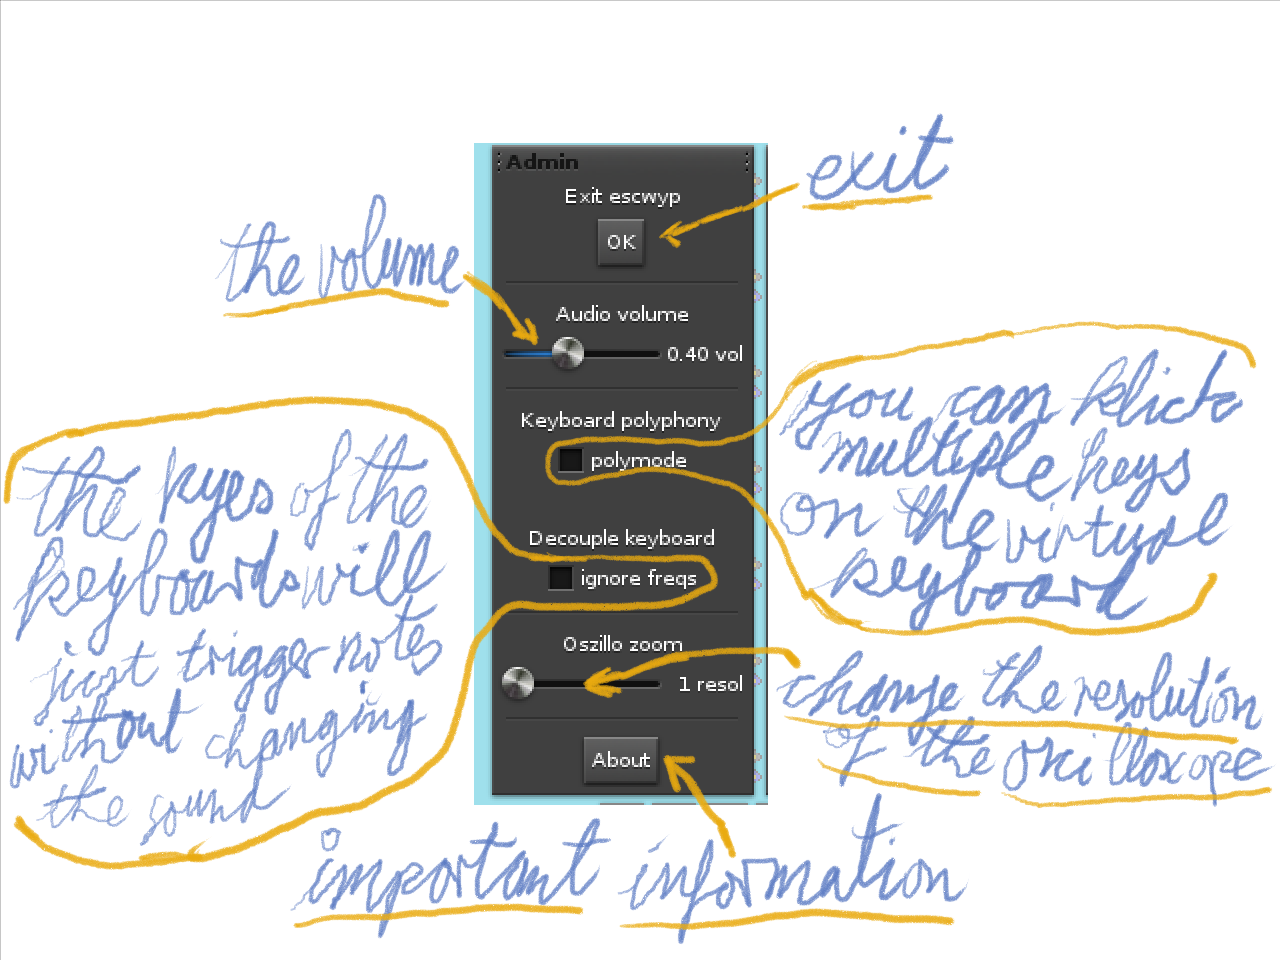 Admin
Exit escwyp
OK
exit
the volume
Audio volume
0.40 vol
Keyboard polyphony
polymode
you can klick
multiple keys
on the virtual
keyboard
Decouple keyboard
ignore freqs
the kyes of the
keyboards will
just trigger notes
without changing
the sound
Oszillo zoom
1 resol
change the resolution
of the oscilloscope
About
important information